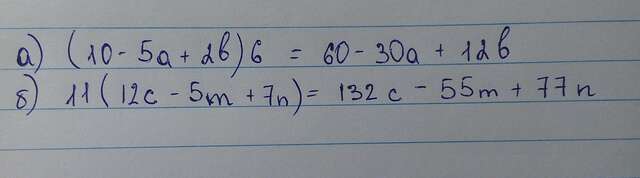 а) (10 - 5a + 2b)6 = 60 - 30a + 12b
б) 11(12c - 5m + 7n) = 132c - 55m + 77n